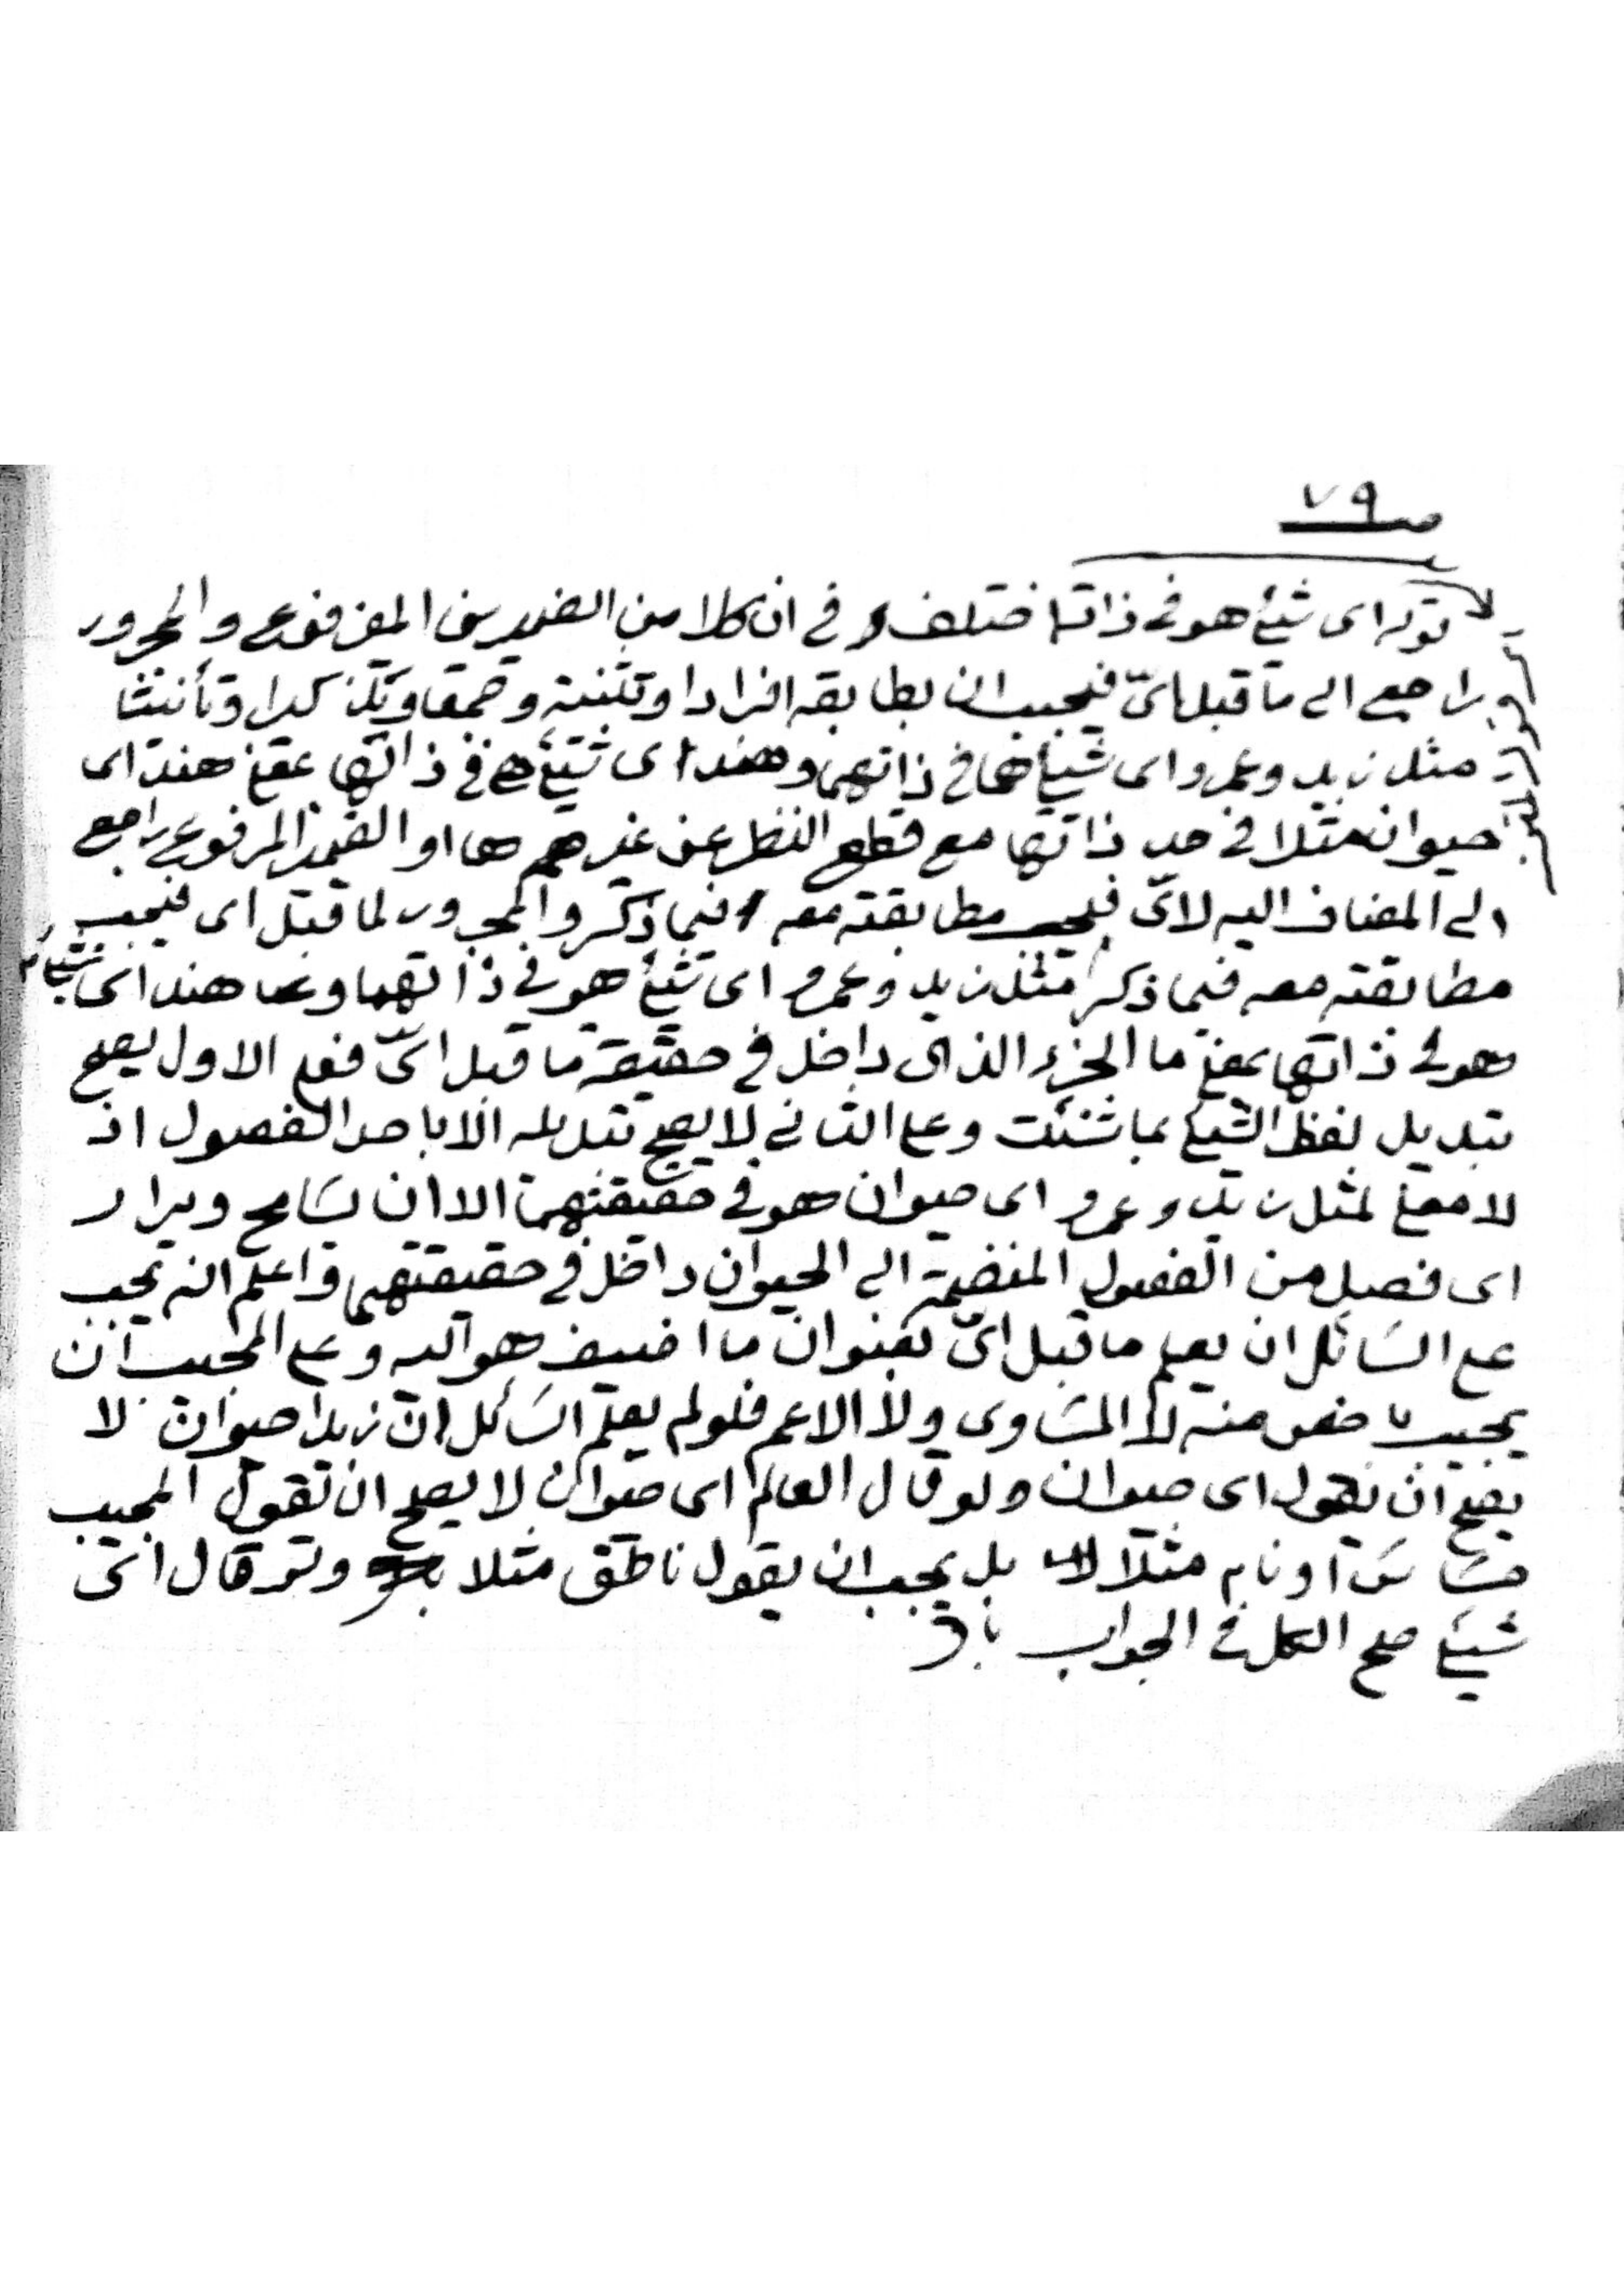 صـ٧٩
قوله ای شیئ هو فی ذاته اختلف فی ان کلا من الضمیرین المرفوع والمجرور
راجع الی ما قبل ایّ فیجب ان یطابقه افرادا وتثنیة وجمعا وتذکیرا وتأنیثا
مثل زید وعمرو ای شیئ هما فی ذاتهما وهند ای شیئ هی فی ذاتها بمعنی هند ای
حیوان مثلا فی حد ذاتها مع قطع النظر عن غیرها او الضمیر المرفوع راجع
الی المضاف الیه لایّ فیجب مطابقته معه فیما ذکر والمجرور لما قبل ای فیجب
مطابقته معه فیما ذکر مثل زید وعمرو ای شیئ هو فی ذاتهما وهند ای شیئ
هو فی ذاتها بمعنی ما الجزء الذی داخل فی حقیقة ما قبل ایّ فعلی الاول یصح
تبدیل لفظ الشیئ بما شئت وعلی الثانی لا یصح تبدیله الا باحد الفصول اذ
لا معنی لمثل زید وعمرو ای حیوان هو فی حقیقتهما الا ان یسامح ویراد
ای فصل من الفصول المنضمة الی الحیوان داخل فی حقیقتهما واعلم انه یجب
علی السائل ان یعلم ما قبل ایّ بعنوان ما اضیف هو الیه وعلی المجیب ان
یجیب باخص منه لا المساوی ولا الاعم فلو لم یعلم السائل ان زیدا حیوان لا
یصح ان یقول ای حیوان ولو قال العالم ای حیوان لا یصح ان یقول المجیب
حساس او نام مثلا بل یجب ان یقول ناطق مثلا ولو قال ایّ
شیئ صح الکل فی الجواب